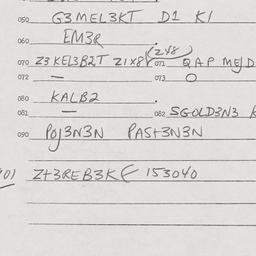 050 G3MEL3KT D1 K1
060 EM3R
(2x8)
070 Z3KEL3B2T Z1X8Y 071 QAP MEJD
072 — 073 O
080 KALB2
081 — 082 SGOLD3N3
090 POJ3N3N PAST3N3N
01 Z+3REB3K E 153040